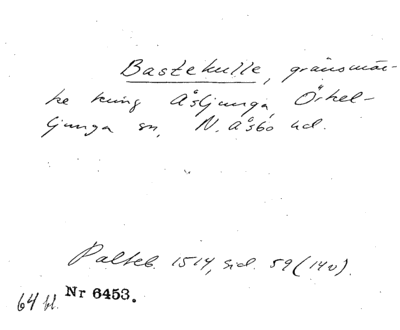 Bastekulle, gränsmär-
ke kring Åsljunga, Örkel-
ljunga sn, N. Åsbo hd.
Palteb. 1514, sid. 59 (140).
64 bl. Nr 6453.